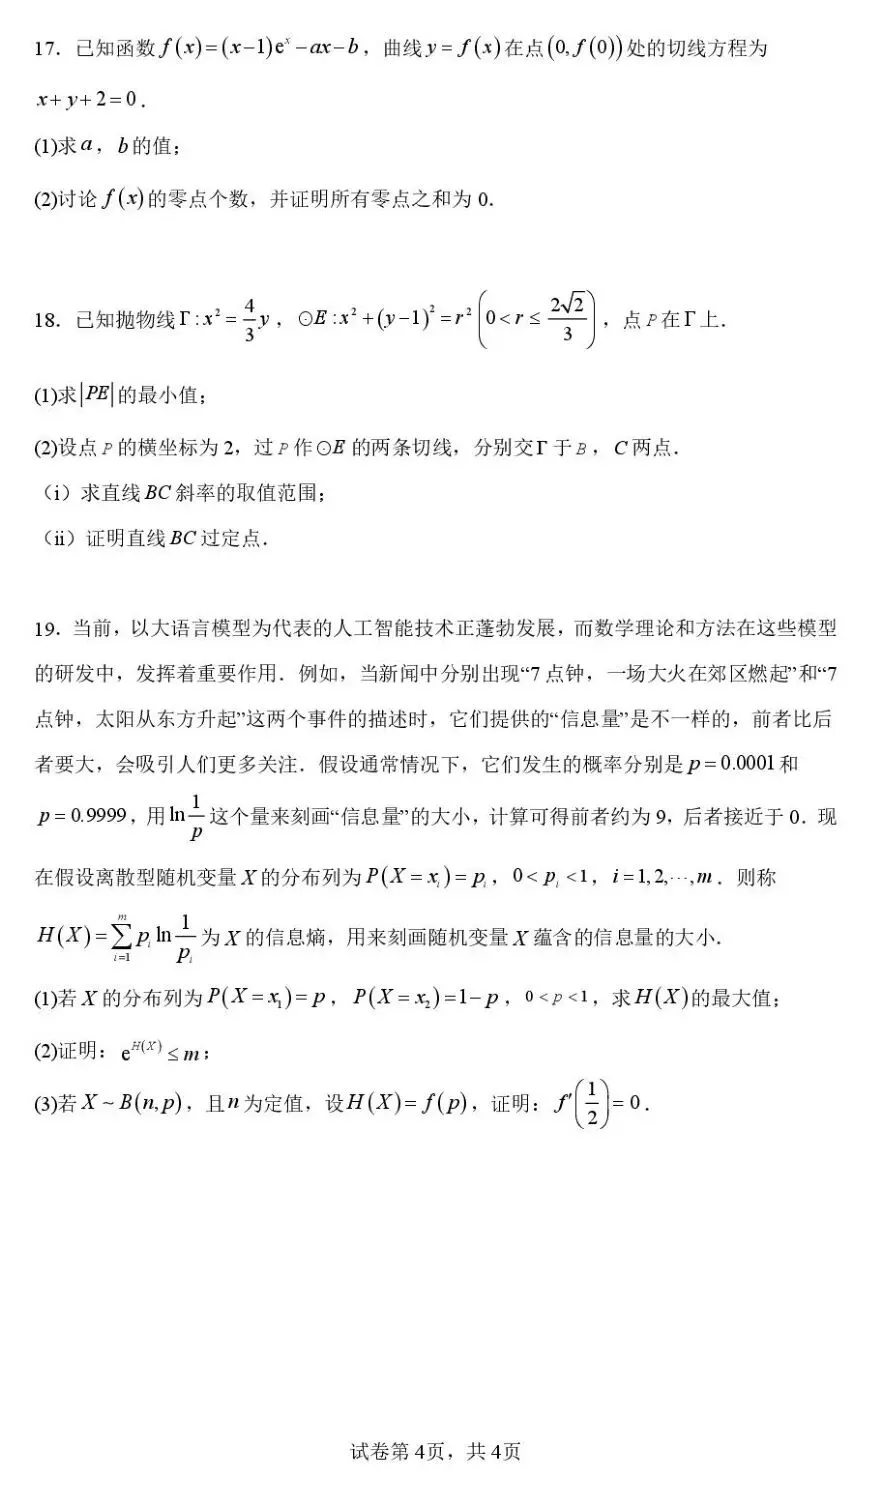 17．已知函数 f(x)=(x−1)eˣ−ax−b，曲线 y=f(x) 在点 (0, f(0)) 处的切线方程为
x+y+2=0．
(1)求 a，b 的值；
(2)讨论 f(x) 的零点个数，并证明所有零点之和为 0．
18．已知抛物线 Γ:x²=4/3 y，⊙E:x²+(y−1)²=r²(0<r≤2√2/3)，点 P 在 Γ 上．
(1)求|PE|的最小值；
(2)设点 P 的横坐标为 2，过 P 作 ⊙E 的两条切线，分别交 Γ 于 B，C 两点．
（i）求直线 BC 斜率的取值范围；
（ii）证明直线 BC 过定点．
19．当前，以大语言模型为代表的人工智能技术正蓬勃发展，而数学理论和方法在这些模型
的研发中，发挥着重要作用．例如，当新闻中分别出现“7 点钟，一场大火在郊区燃起”和“7
点钟，太阳从东方升起”这两个事件的描述时，它们提供的“信息量”是不一样的，前者比后
者要大，会吸引人们更多关注．假设通常情况下，它们发生的概率分别是 p=0.0001 和
p=0.9999，用 ln 1/p 这个量来刻画“信息量”的大小，计算可得前者约为 9，后者接近于 0．现
在假设离散型随机变量 X 的分布列为 P(X=xᵢ)=pᵢ，0<pᵢ<1，i=1,2,⋯,m．则称
H(X)=∑ᵢ₌₁ᵐ pᵢ ln 1/pᵢ 为 X 的信息熵，用来刻画随机变量 X 蕴含的信息量的大小．
(1)若 X 的分布列为 P(X=x₁)=p，P(X=x₂)=1−p，0<p<1，求 H(X) 的最大值；
(2)证明：e^{H(X)}≤m；
(3)若 X~B(n,p)，且 n 为定值，设 H(X)=f(p)，证明：f′(1/2)=0．
试卷第 4页，共 4页